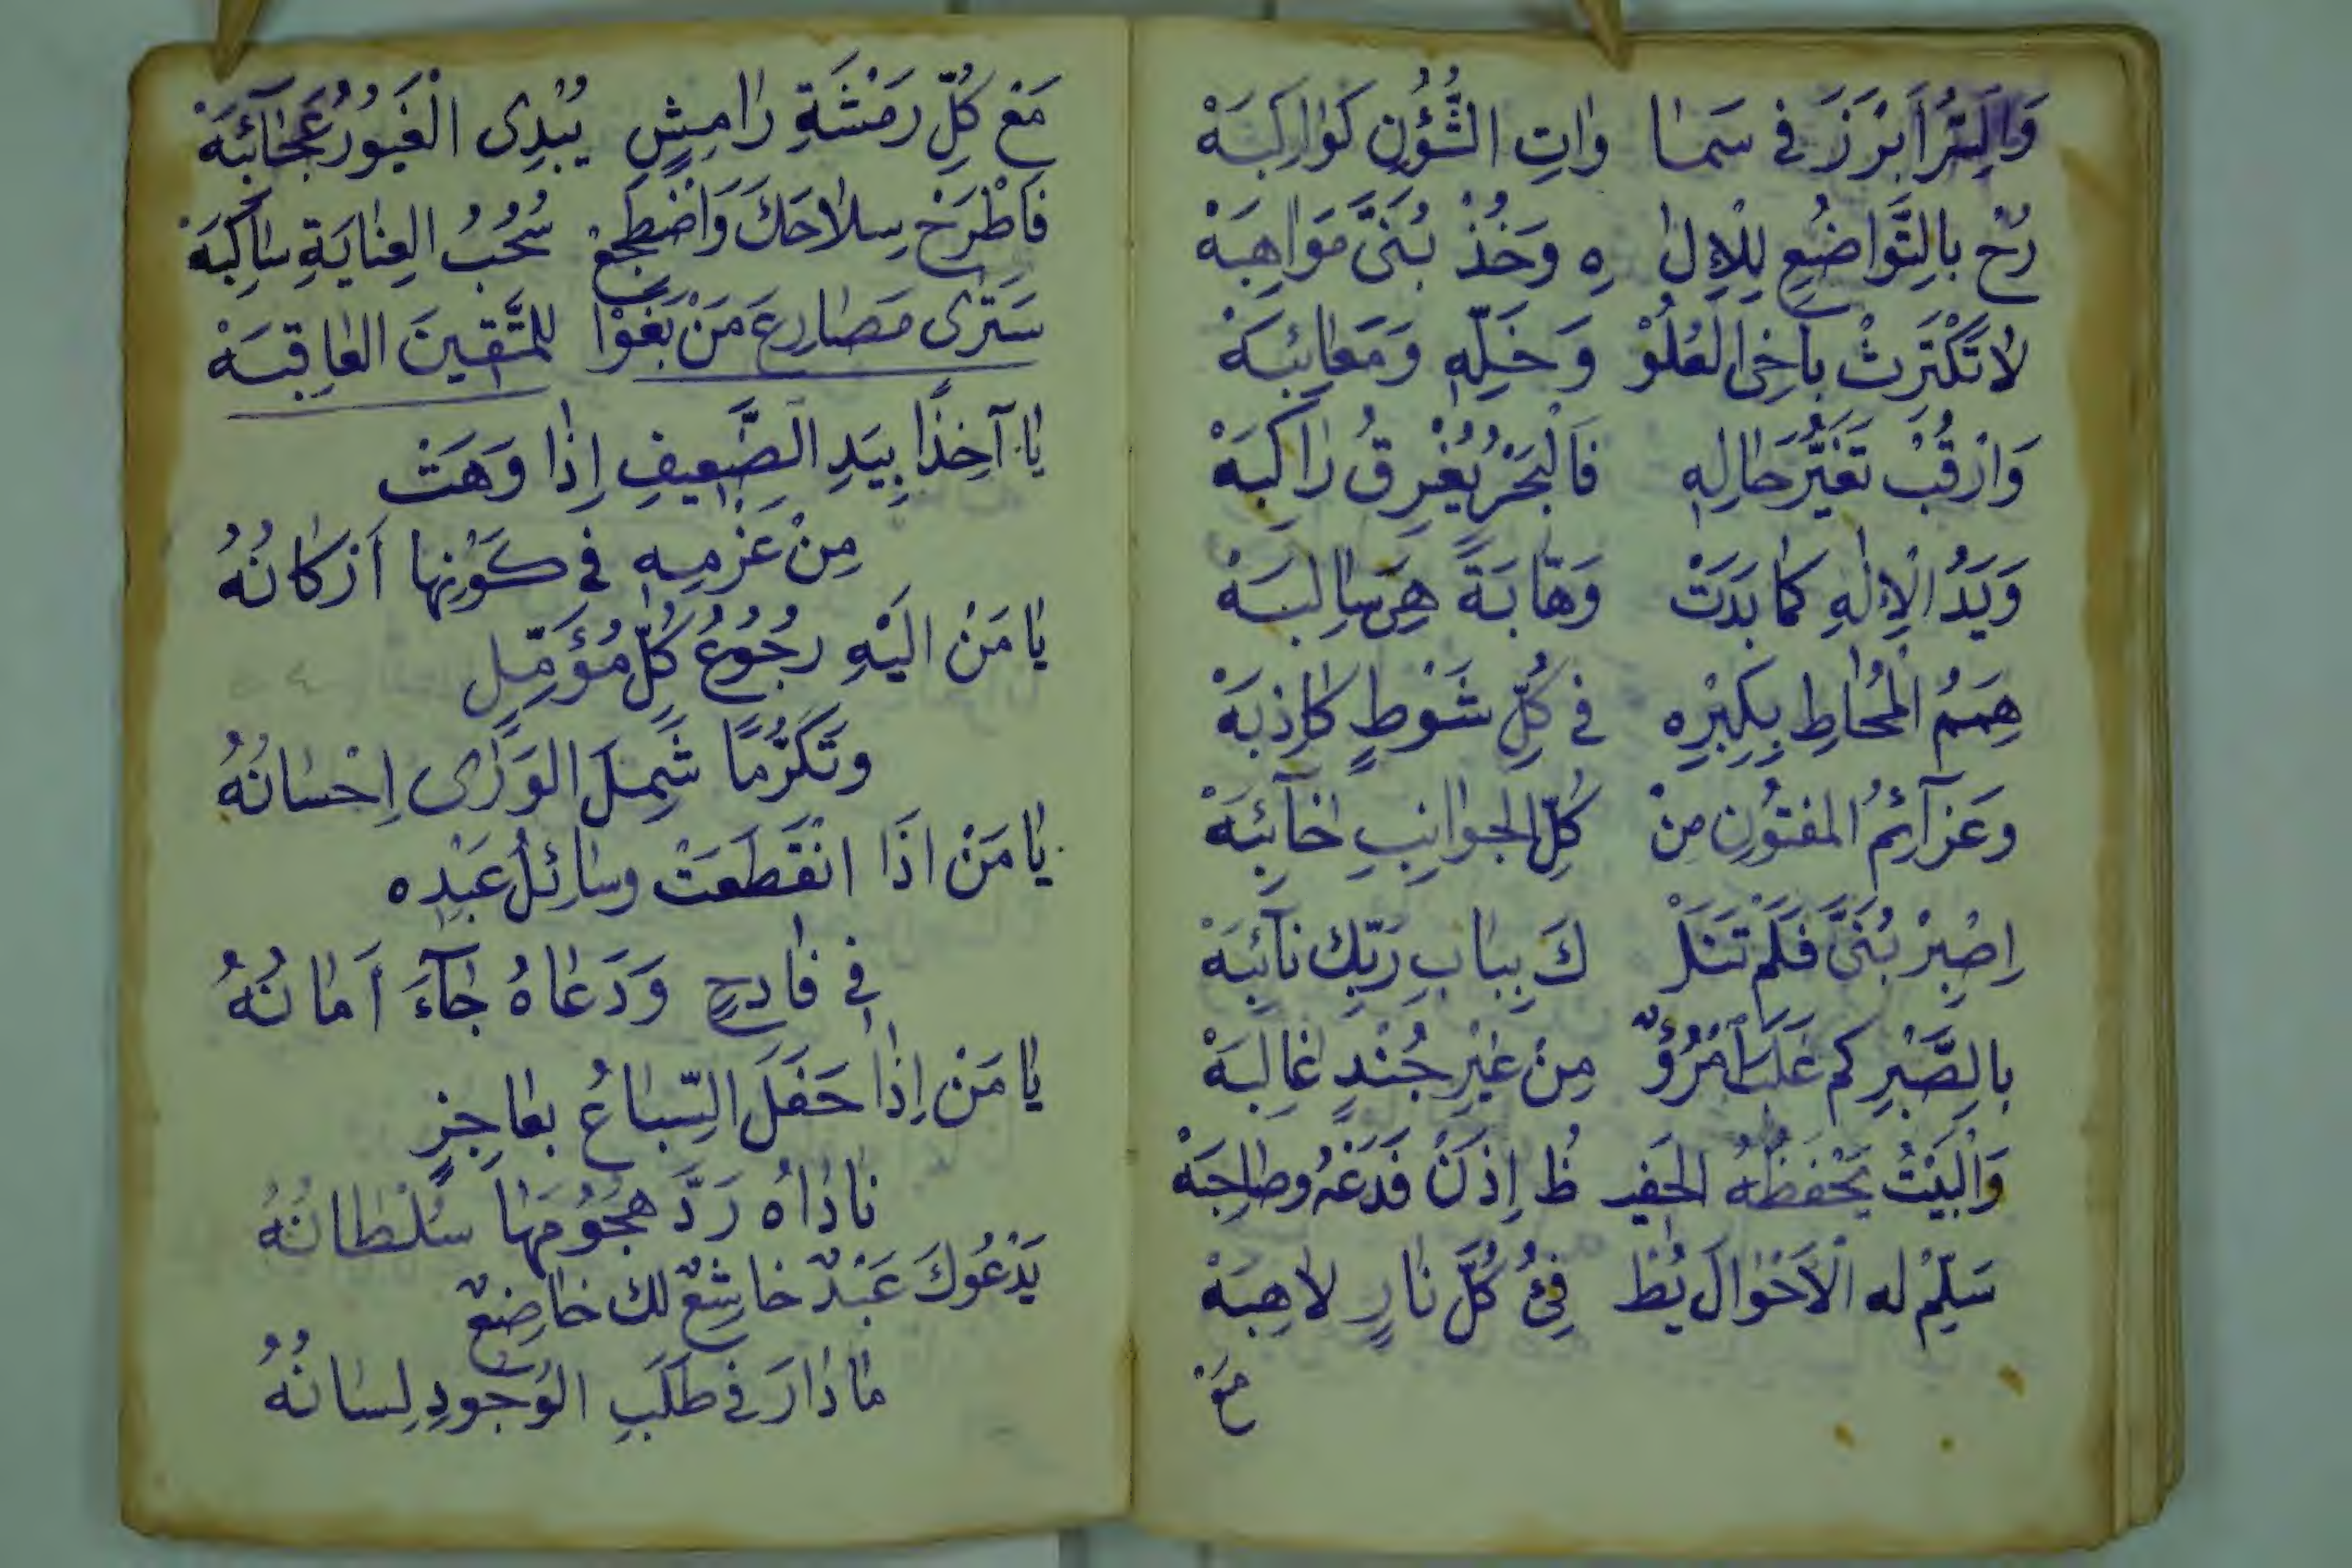 وَالسِّرُّ اَبْرَزَ فى سَمَا وَاتِ الشُّؤُنِ كَوَاكِبَهْ
رُحْ بِالتَّوَاضُعِ لِلْاِلٰ هِ وَخُذْ بُنَىَّ مَوَاهِبَهْ
لَا تَكْتَرِثْ بِاَخِى الْعُلُوْ وَخَلِّهِ وَمَعَائِبَهْ
وَارْقُبْ تَغَيُّرَ حَالِهِ فَالْبَحْرُ يُغْرِقُ رَاكِبَهْ
وَيَدُ الْاِلٰهِ كَمَا بَدَتْ وَهَّابَةً هِىَ سَالِبَهْ
هِمَمُ الْمُحَاطِ بِكِبْرِهِ فى كُلِّ شَوْطٍ كَاذِبَهْ
وَعَزَآئِمُ الْمَفْتُونِ مِنْ كُلِّ الْجَوَانِبِ خَآئِبَهْ
اِصْبِرْ بُنَىَّ فَلَمْ تَنَلْ كَ بِبَابِ رَبِّكَ نَآئِبَهْ
بِالصَّبْرِ كَمْ غَلَبَ امْرُؤٌ مِنْ غَيْرِ جُنْدٍ غَالِبَهْ
وَالْبَيْتُ يَحْفَظُهُ الْحَفِيـ ظُ اِذَنْ فَدَعْهُ وصَاحِبَهْ
سَلِّمْ لَهُ الْاَحْوَالَ يُطْ فِئُ كُلَّ نَارٍ لَاهِبَهْ
مَعَ
مَعْ كُلِّ رَمْشَةِ رَامِشٍ يُبْدِى الْغَيُورُ عَجَآئِبَهْ
فَاطْرَحْ سِلَاحَكَ وَاضْطَجِعْ سُحُبُ الْعِنَايَةِ سَاكِبَهْ
سَتَرٰى مَصَارِعَ مَنْ بَغَوْا لِلْمُتَّقِينَ الْعَاقِبَهْ
يَا آخِذًا بِيَدِ الضَّعِيفِ اِذَا وَهَتْ
مِنْ عَزْمِهِ فى كَوْنِهَا اَرْكَانُهُ
يَا مَنْ اِلَيْهِ رُجُوعُ كُلِّ مُؤَمِّلٍ
وَتَكَرُّمًا شَمِلَ الْوَرٰى اِحْسَانُهُ
يَا مَنْ اِذَا انْقَطَعَتْ وَسَائِلُ عَبْدِهِ
فِى فَادِحٍ وَدَعَاهُ جَآءَ اَمَانُهُ
يَا مَنْ اِذَا حَفَلَ السِّبَاعُ بِعَاجِزٍ
نَادَاهُ رَدَّ هُجُومَهَا سُلْطَانُهُ
يَدْعُوكَ عَبْدٌ خَاشِعٌ لَكَ خَاضِعٌ
مَا دَارَ فى طَلَبِ الْوُجُودِ لِسَانُهُ